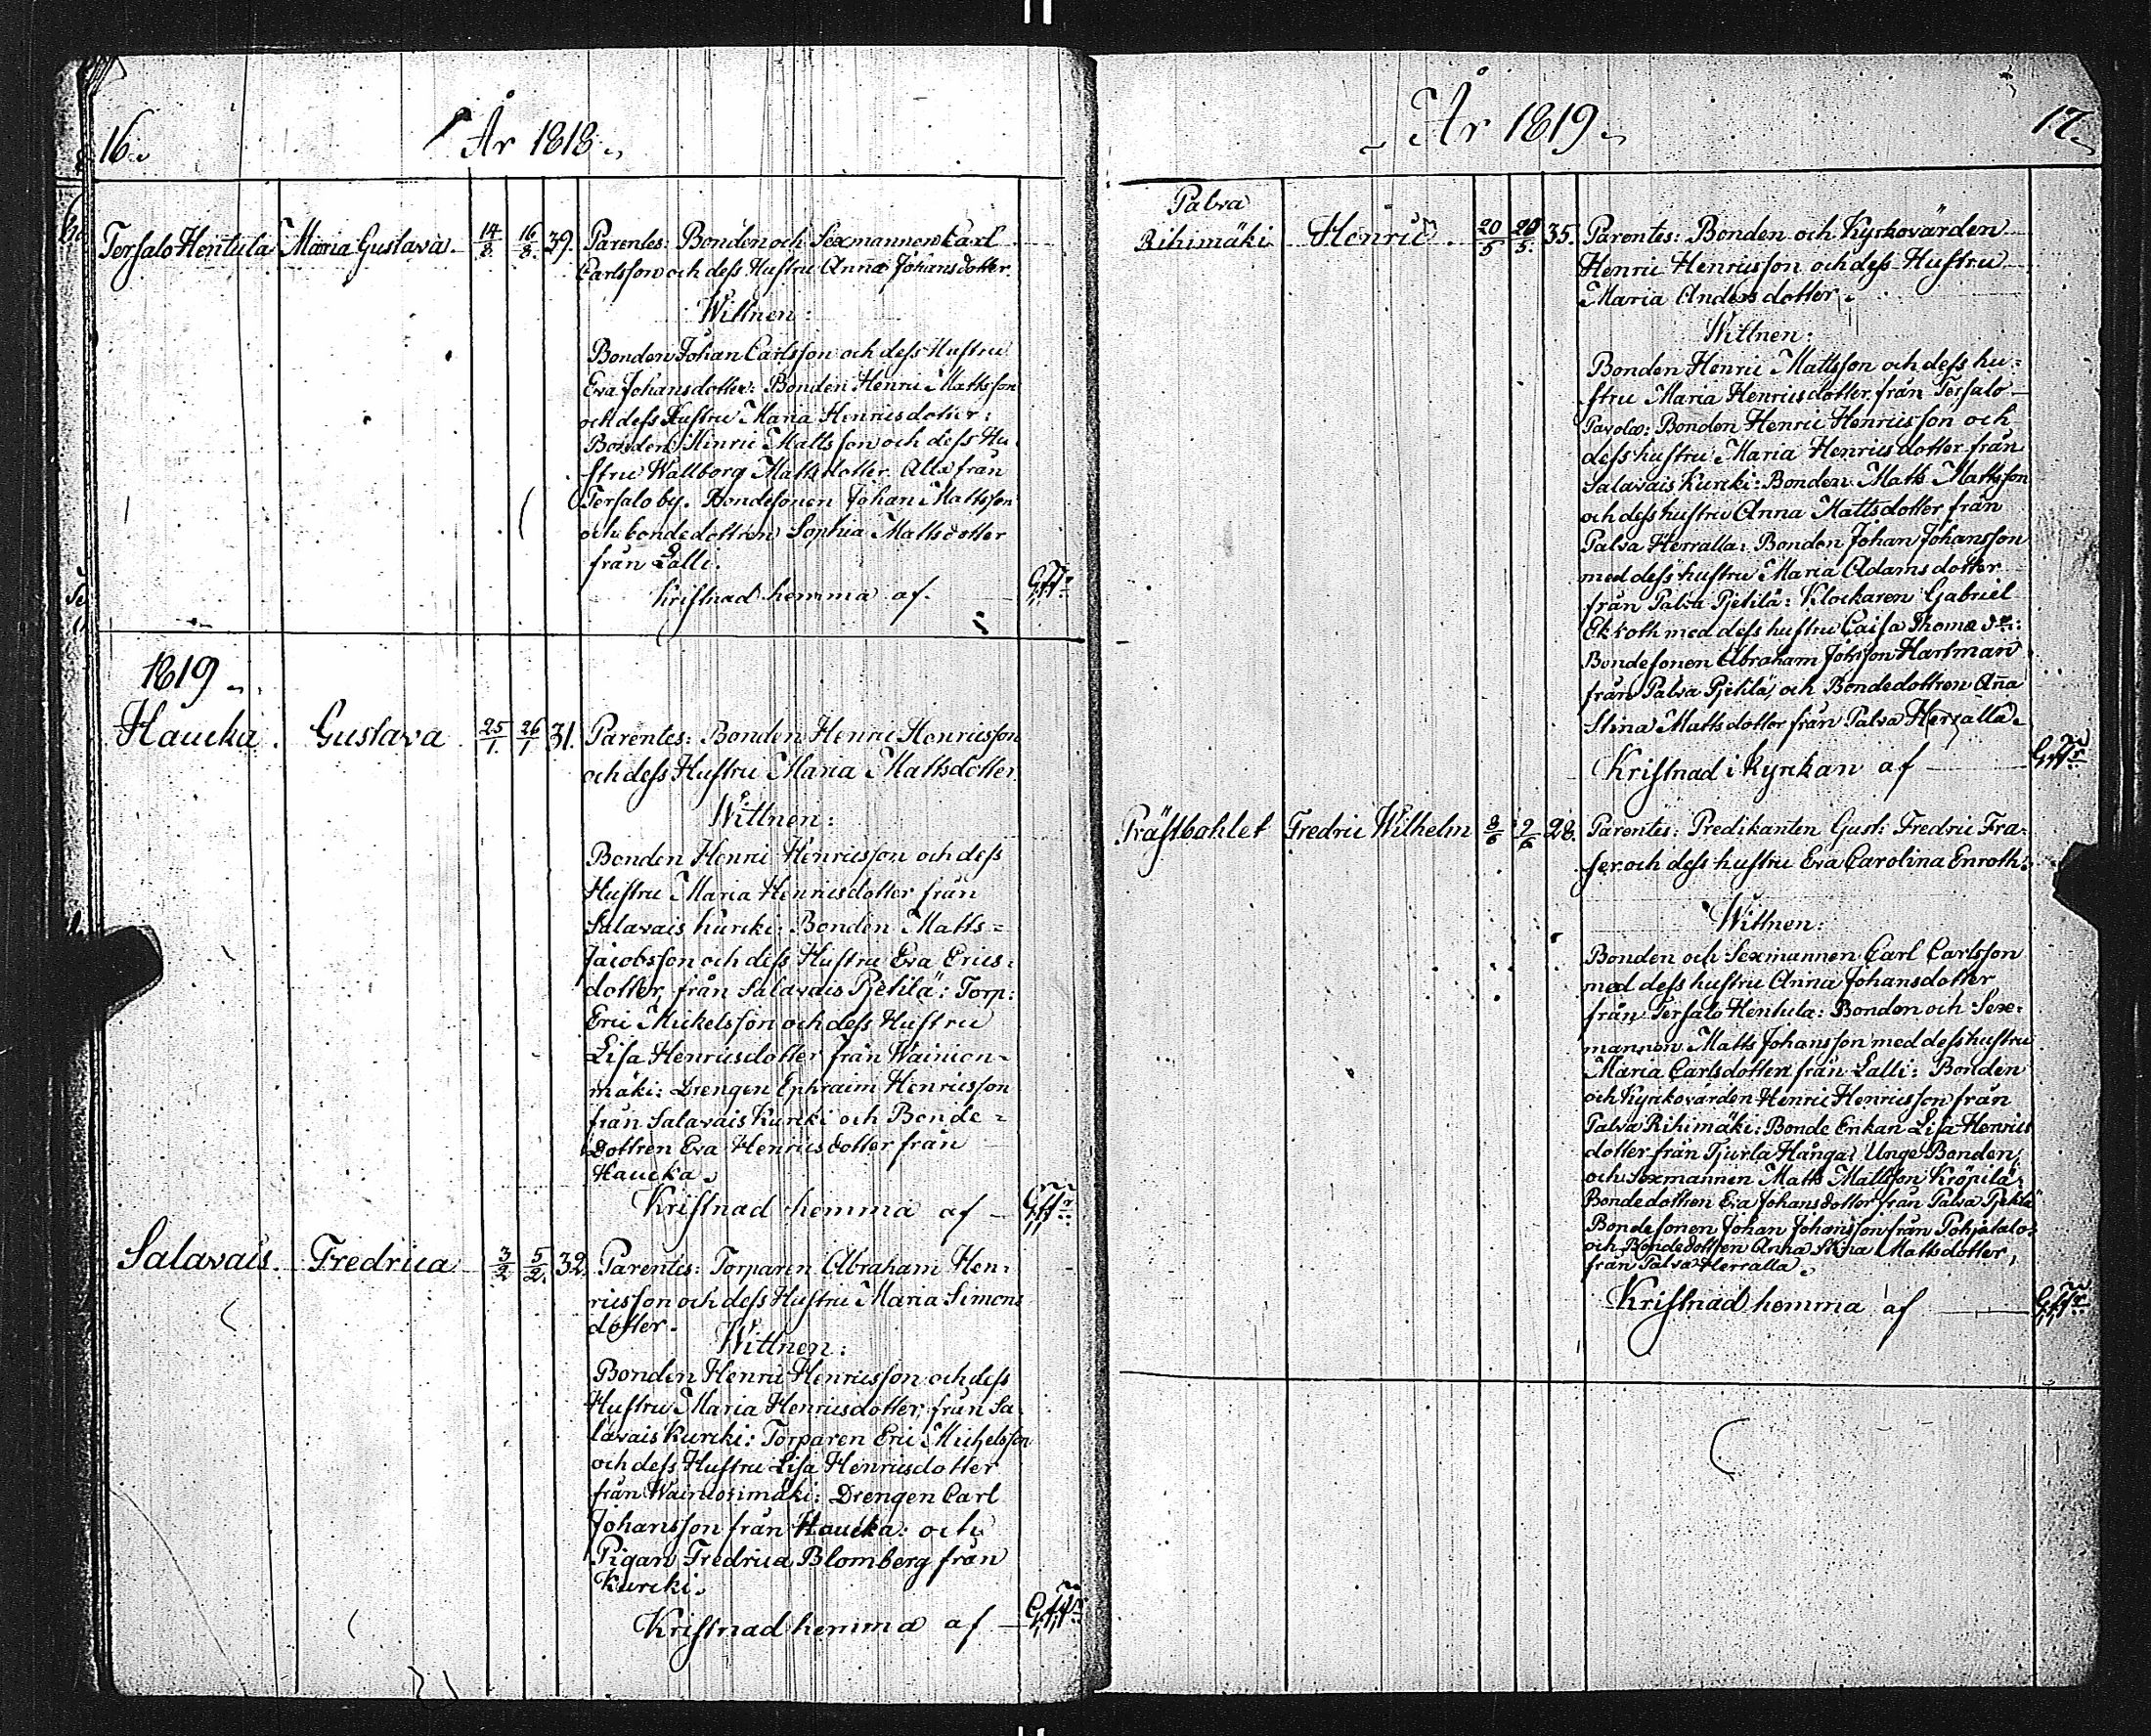 16.
År 1818.
Tersalo Hentula Maria Gustava 14/8. 16/8. 39. Parentes: Bonden och Sexmannen Carl
Carlsson och dess Hustru Anna Johansdotter.
Wittnen:
Bonden Johan Carlsson och dess Hustru
Eva Johansdotter: Bonden Henric Mattsson
och dess Hustru Maria Henricsdotter:
Bonden Hinric Mattsson och dess Hu-
stru Wallborg Mattsdotter. Alla från
Tersalo by. Bondesonen Johan Mattsson
och bondedottren Sophia Mattsdotter
från Lalli.
Kristnad hemma af. GffFr
1819.
Haucka. Gustava 25/1. 26/1 31. Parentes: Bonden Henric Henricsson
och dess Hustru Maria Mattsdotter
Wittnen:
Bonden Henric Henricsson och dess
Hustru Maria Henricsdotter från
Salavais kurcki: Bonden Matts=
Jacobsson och dess Hustru Eva Erics-
dotter, från Salavais Pjetilä: Torp:
Eric Mickelsson och dess Hustru
Lisa Henricsdotter från Wainion-
mäki: Drengen Ephraim Henricsson
från Salavais Kurcki och Bonde=
Dottren Eva Henricsdotter från
Haucka.
Kristnad hemma af
Salavais. Fredrica 3/2 5/2. 32. Parentes: Torparen Abraham Hen-
ricsson och dess Hustru Maria Simons
dotter.
Wittnen:
Bonden Henric Henricsson och dess
Hustru Maria Henricsdotter, från Sa-
lavais Kurcki: Torparen Eric Michelsson
och dess Hustru Lisa Henricsdotter
från Wainionmäki: Drengen Carl
Johansson från Haucka: och
Pigan Fredrica Blomberg från
Kurcki.
Kristnad hemma af
År 1819.
17.
Palva
Rihimäki Henric. 20/5 20/5. 35. Parentes: Bonden och Kyrkovärden
Henric Henricsson och dess Hustru
Maria Andersdotter.
Wittnen:
Bonden Henric Mattsson och dess hu=
stru Maria Henricsdotter, från Tersalo
Pavola: Bonden Henric Henricsson och
dess hustru Maria Henricsdotter från
Salavais Kurcki: Bonden Matts Mattsson
och dess hustru Anna Mattsdotter från
Palva Herralla: Bonden Johan Johansson
med dess hustru Maria Adamsdotter
från Palva Pjetilä: Klockaren Gabriel
Ekroth med dess hustru Caisa Thomæ dr:
Bondesonen Abraham Johsson Hartman
från Palva Pjetilä, och Bondedottren Ana
Stina Mattsdotter från Palva Herralla.
Kristnad i kyrckan af
Prästbohlet Fredric Wilhelm 8/6 9/6 28. Parentes: Predikanten Gust: Fredric Fra-
ser och dess hustru Eva Carolina Enroth:
Wittnen:
Bonden och Sexmannen Carl Carlsson
med dess hustru Anna Johansdotter
från Tersalo Hentula: Bonden och Sexe-
mannen Matts Johansson med dess hustru
Maria Carlsdotter från Lalli: Bonden
och Kyrckovärden Henric Henricsson från
Palva Rihimäki: Bonde Enkan Lisa Henrics
dotter från Tjurla Hånga: Unge Bonden
och Sexmannen Matts Mattsson Kröpilä:
Bondedottren Eva Johansdotter från Palva Pjetilä
Bondesonen Johan Johansson från Pohjatalo:
och Bondedottren Anna Stina Mattsdotter,
från Palva Herralla.
Kristnad hemma af